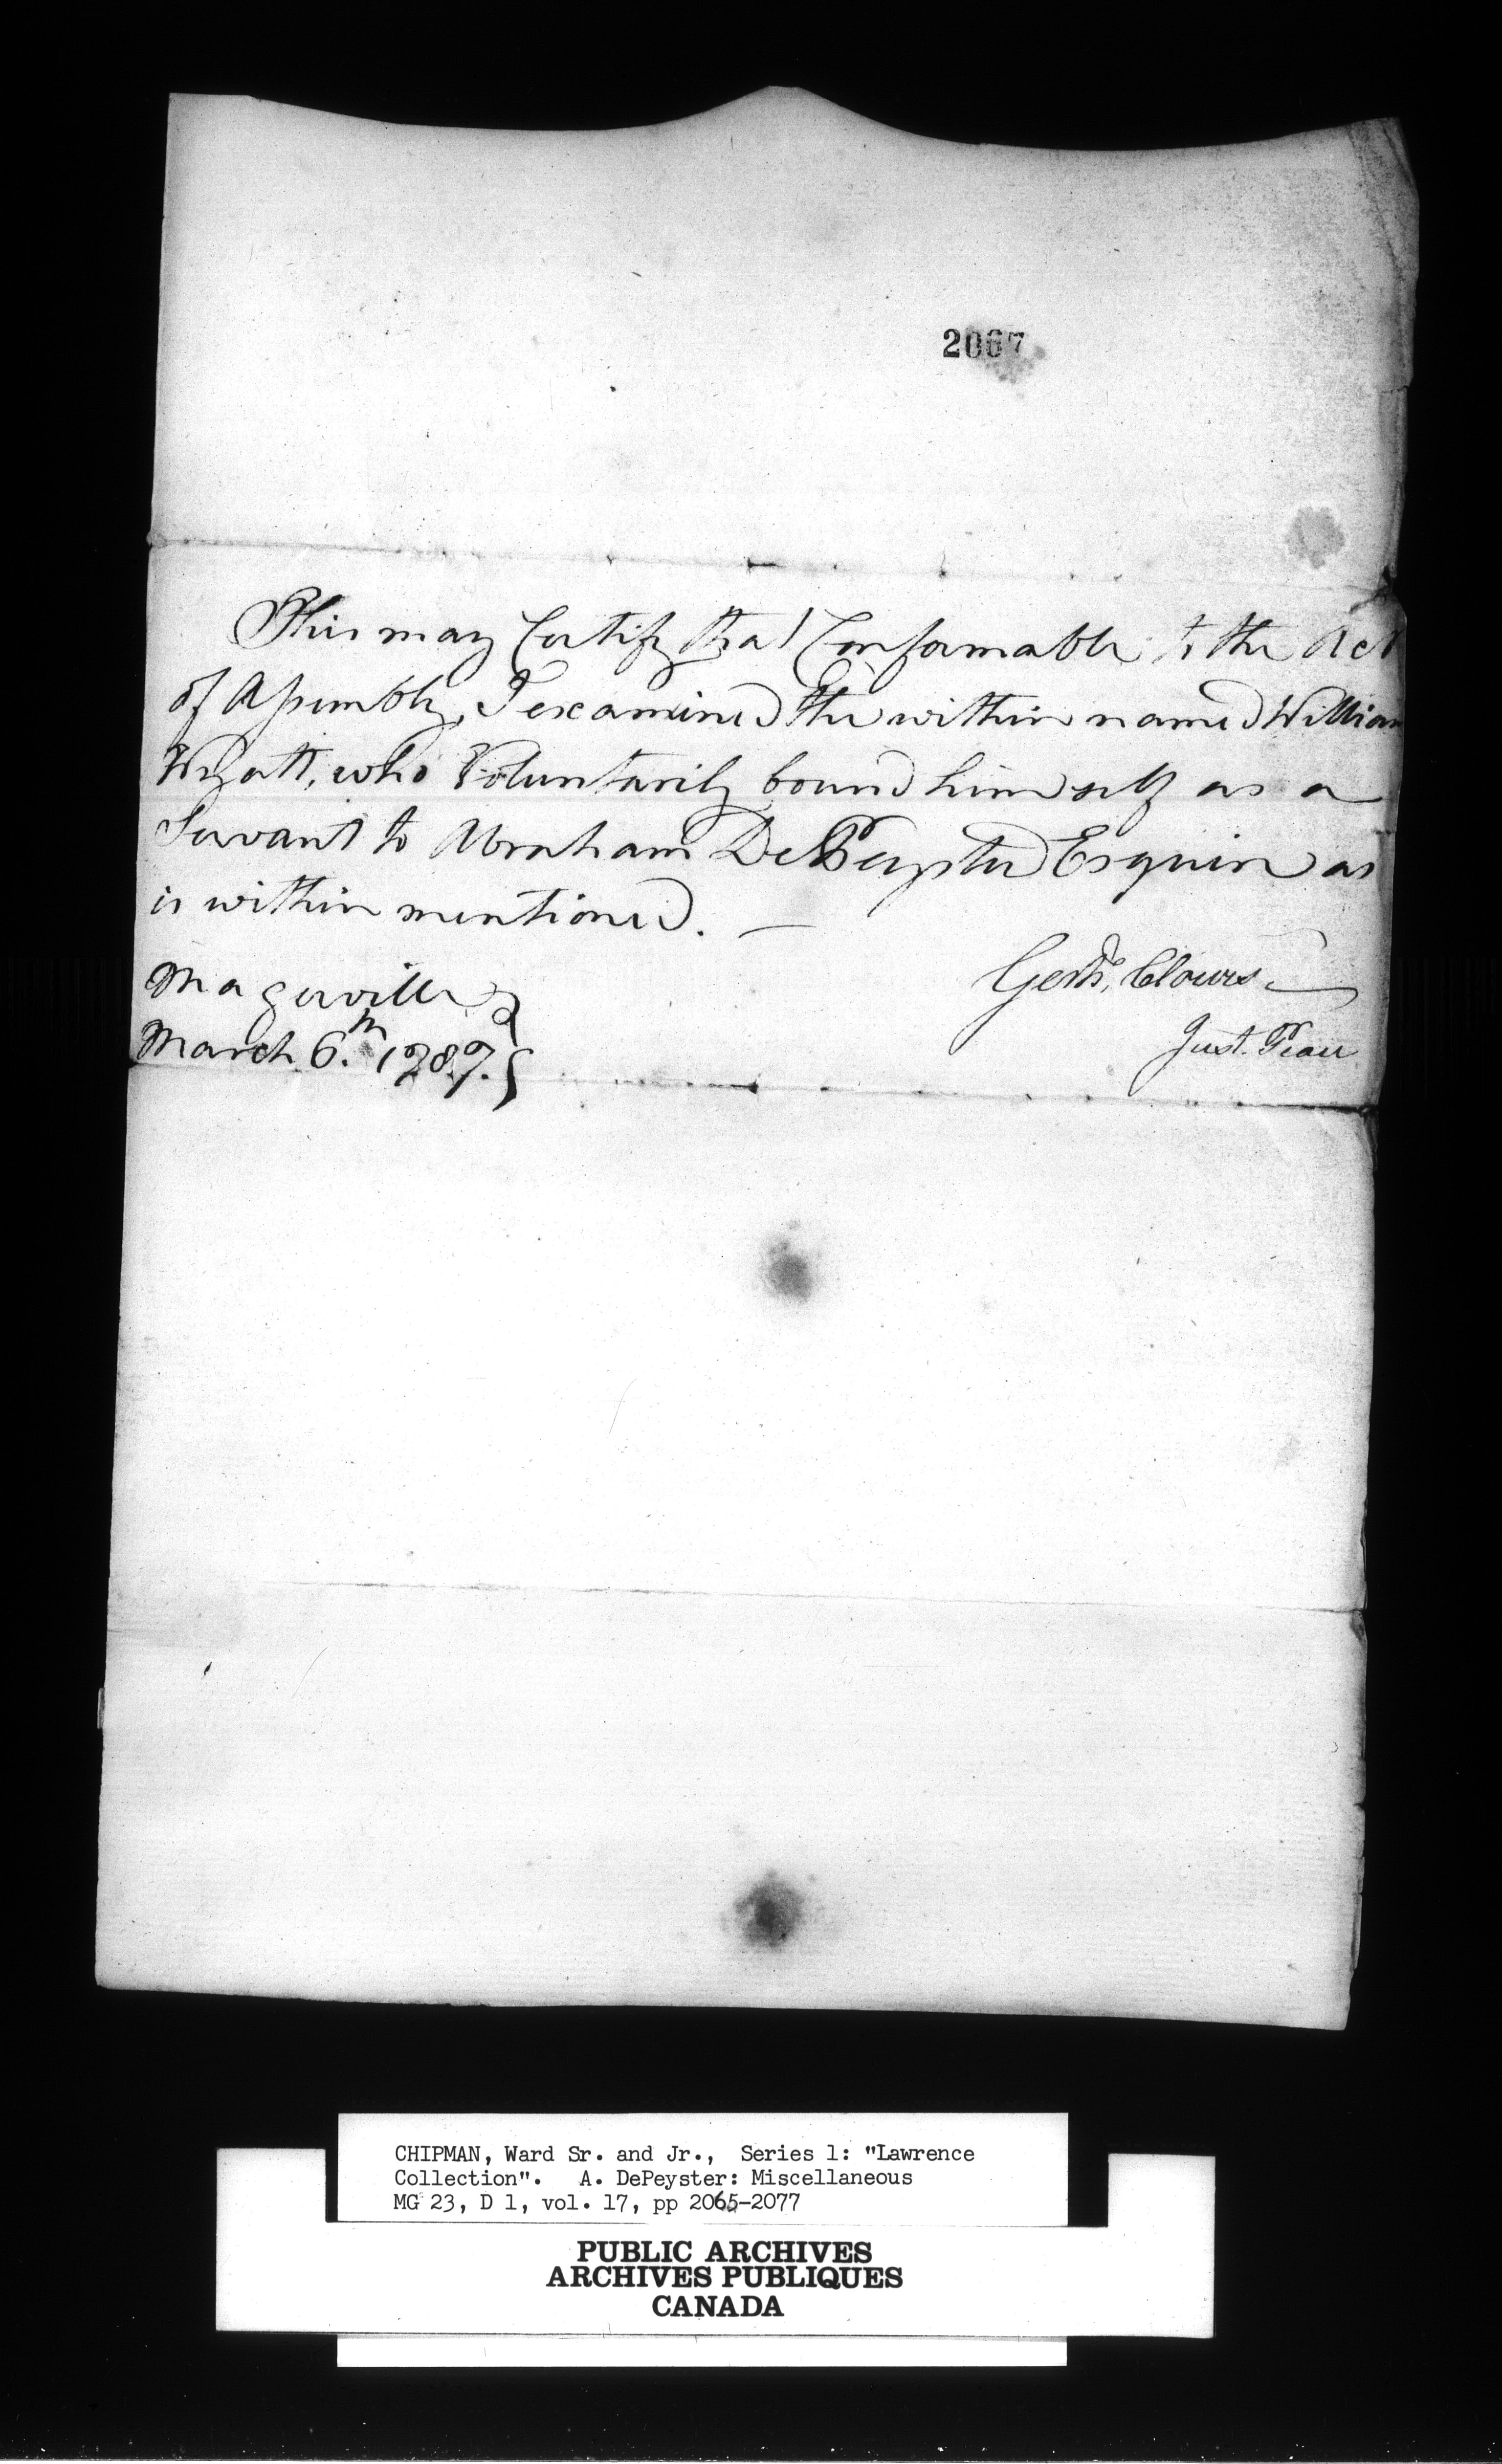 2067
This may Certify that Conformable to the Act
of Assembly, I examined the within named William
Wyatt, who Voluntarily bound himself as a
Servant to Abraham DePeyster Esquire as
is within mentioned. —
Magerville
March 6.th 1787.
Gersh. Clowes
Just. Peace
CHIPMAN, Ward Sr. and Jr., Series 1: "Lawrence
Collection". A. DePeyster: Miscellaneous
MG 23, D 1, vol. 17, pp 2065-2077
PUBLIC ARCHIVES
ARCHIVES PUBLIQUES
CANADA